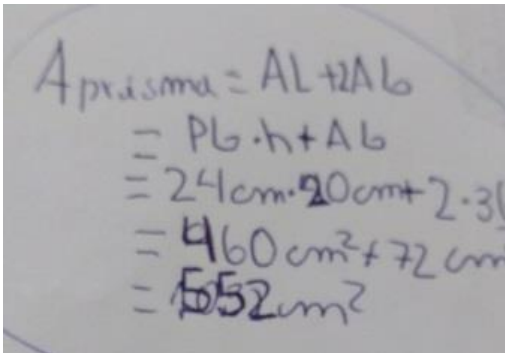 Aprisma = AL+2Ab
= Pb·h+Ab
= 24cm·20cm+2·3
= 460cm²+72cm
= 552cm²